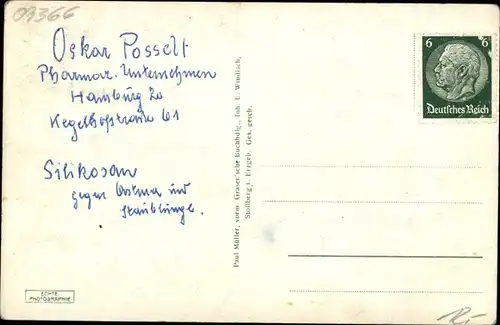 09366
Oskar Posselt
Pharmaz. Unternehmen
Hamburg 20
Kegelhofstraße 61
Silikosan
gegen Astma und
Staublunge.
Paul Müller, vorm. Graser'sche Buchhdlg., Inh. L. Windisch,
Stollberg i. Erzgeb. Ges. gesch.
6 6
Deutsches Reich
ECHTE
PHOTOGRAPHIE